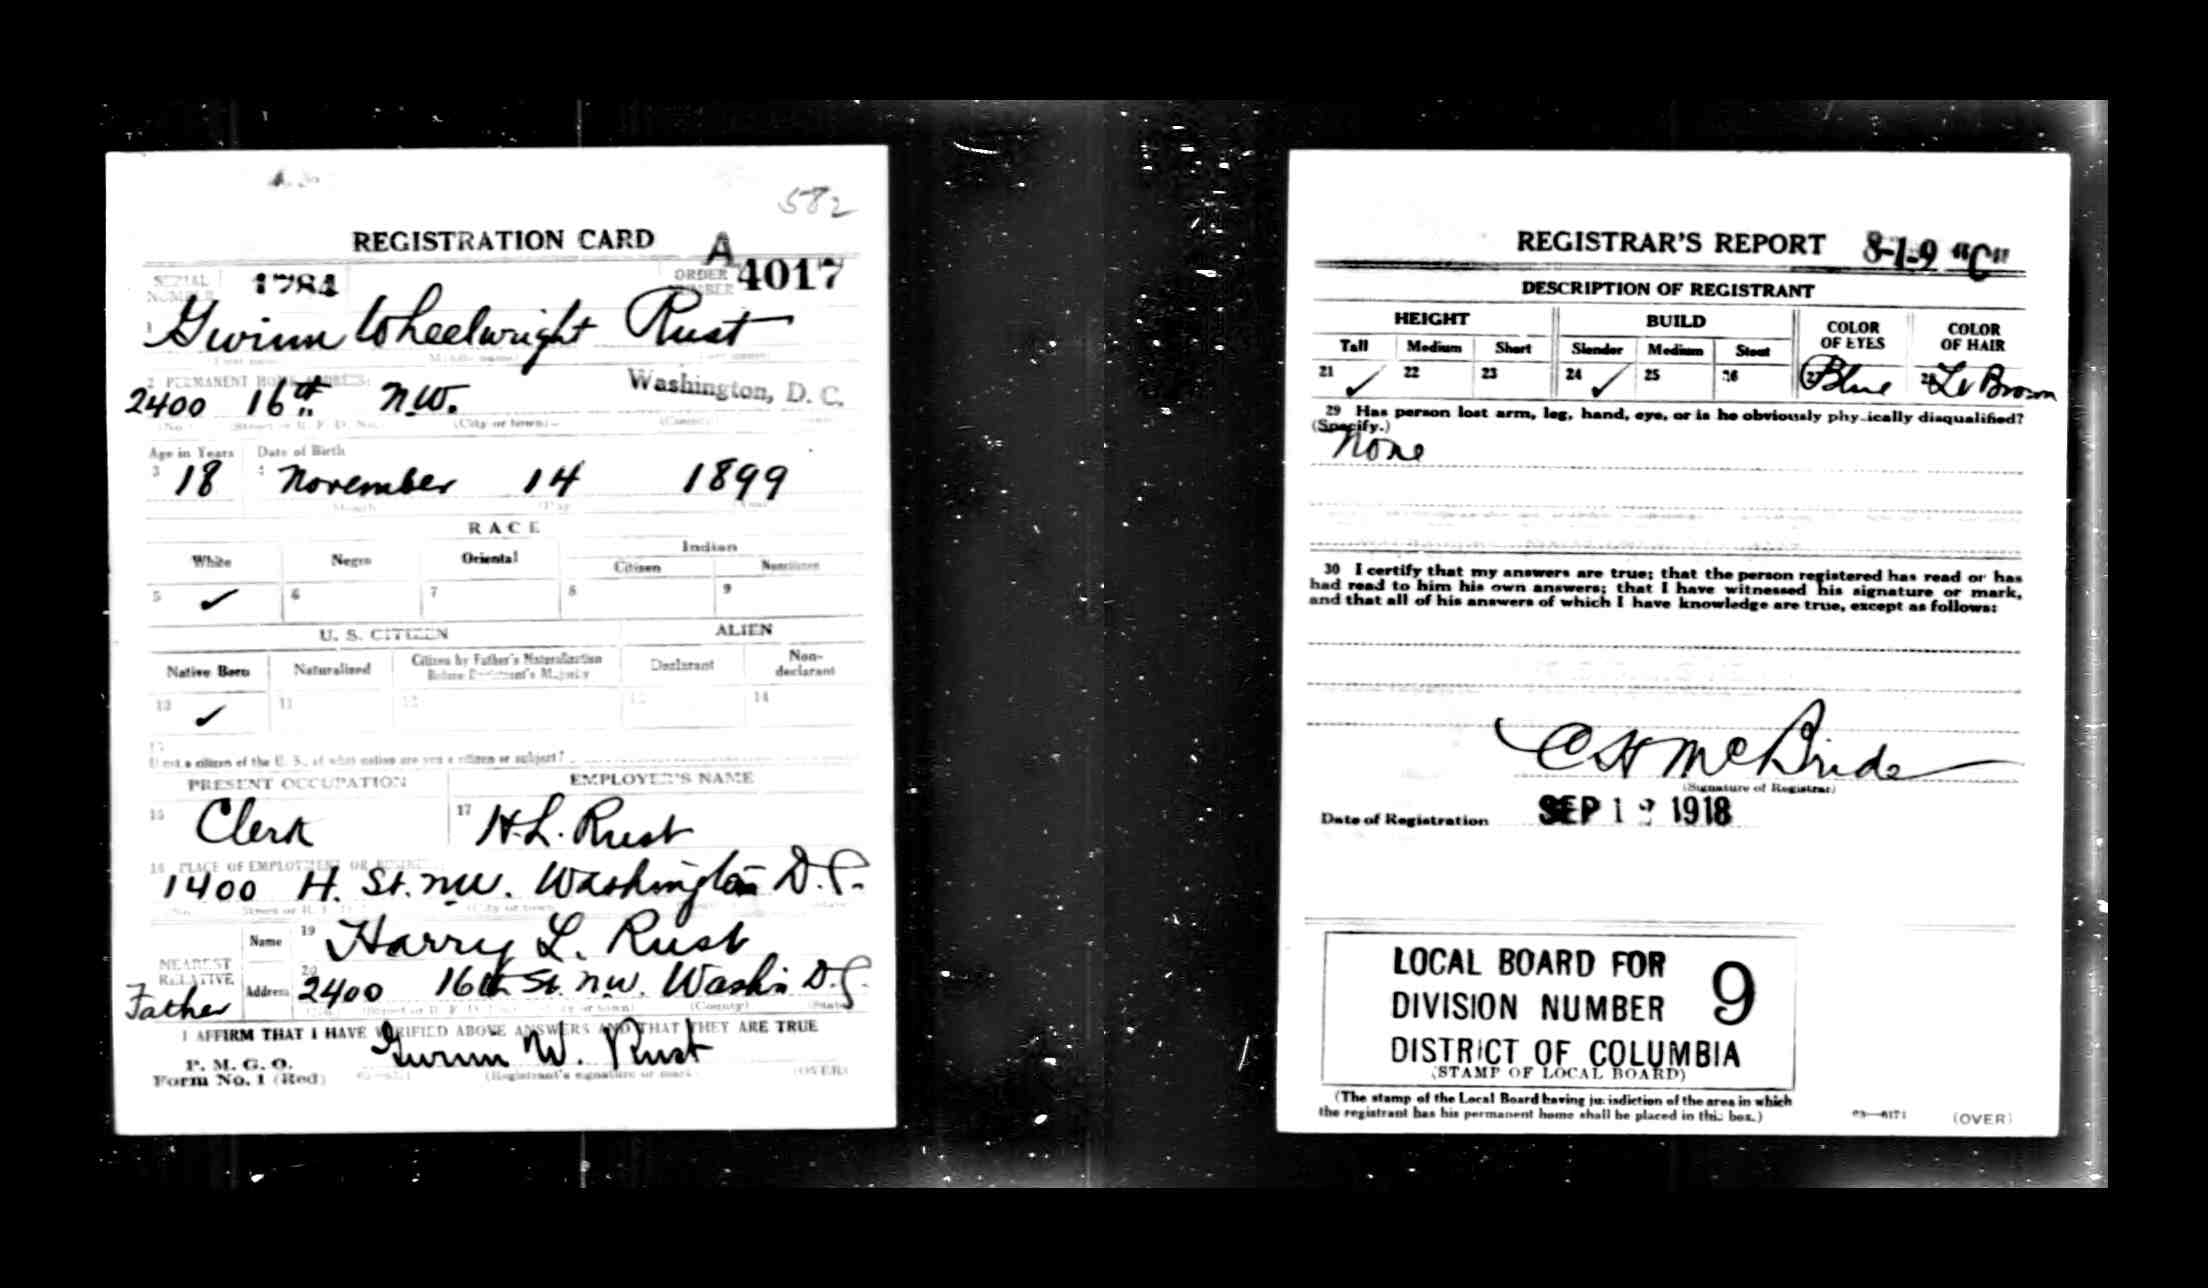 582
REGISTRATION CARD
SERIAL NUMBER 1784 ORDER NUMBER A 4017
1 Gwinn Wheelwright Rust
(First name) (Middle name) (Last name)
2 PERMANENT HOME ADDRESS:
2400 16th N.W. Washington, D. C.
(No.) (Street or R. F. D. No.) (City or town) (County)
Age in Years Date of Birth
3 18 4 November 14 1899
Month (Day)
RACE
White Negro Oriental Indian
Citizen Noncitizen
5 ✓ 6 7 8 9
U. S. CITIZEN ALIEN
Native Born Naturalized Citizen by Father's Naturalization Before Registrant's Majority Declarant Non-declarant
10 ✓ 11 12 13 14
15
If not a citizen of the U. S., of what nation are you a citizen or subject?
PRESENT OCCUPATION EMPLOYER'S NAME
16 Clerk 17 H. L. Rust
18 PLACE OF EMPLOYMENT OR BUSINESS:
1400 H. St. NW. Washington D.C.
(No.) (Street or R. F. D. No.) (City or town) (State)
NEAREST RELATIVE Name 19 Harry L. Rust
Father Address 20 2400 16th St. N.W. Wash'n D.C.
(County) (State)
I AFFIRM THAT I HAVE VERIFIED ABOVE ANSWERS AND THAT THEY ARE TRUE
P. M. G. O.
Form No. 1 (Red) Gwinn W. Rust
(Registrant's signature or mark) (OVER)
REGISTRAR'S REPORT 8-1-9 "C"
DESCRIPTION OF REGISTRANT
HEIGHT BUILD COLOR OF EYES COLOR OF HAIR
Tall Medium Short Slender Medium Stout
21 ✓ 22 23 24 ✓ 25 26 27 Blue 28 Lt Brown
29 Has person lost arm, leg, hand, eye, or is he obviously physically disqualified?
(Specify.)
None
30 I certify that my answers are true; that the person registered has read or has
had read to him his own answers; that I have witnessed his signature or mark,
and that all of his answers of which I have knowledge are true, except as follows:
C H McBride
(Signature of Registrar)
Date of Registration SEP 12 1918
LOCAL BOARD FOR
DIVISION NUMBER 9
DISTRICT OF COLUMBIA
(STAMP OF LOCAL BOARD)
(The stamp of the Local Board having jurisdiction of the area in which
the registrant has his permanent home shall be placed in this box.)
03—6171 (OVER)